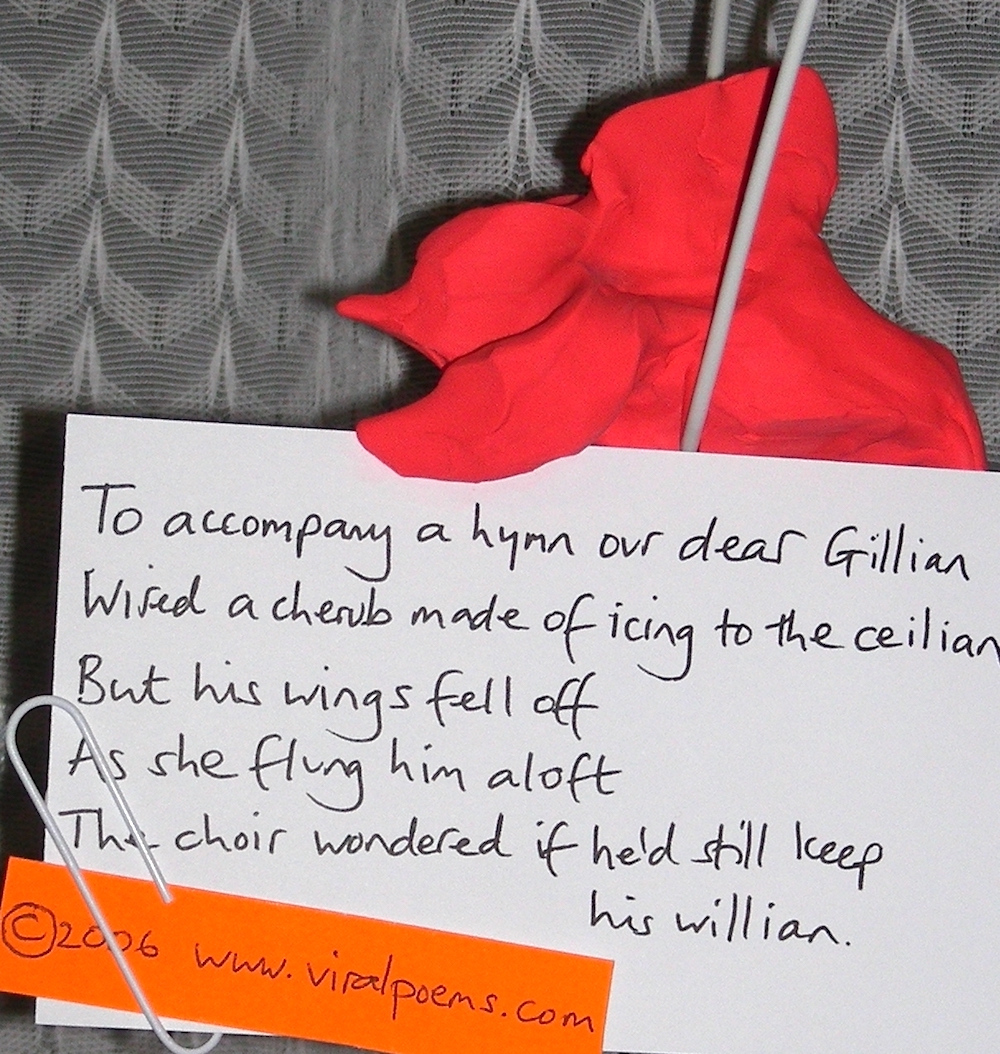 To accompany a hymn our dear Gillian
Wired a cherub made of icing to the ceilian
But his wings fell off
As she flung him aloft
The choir wondered if he'd still keep
his willian.
©2006 www.viralpoems.com